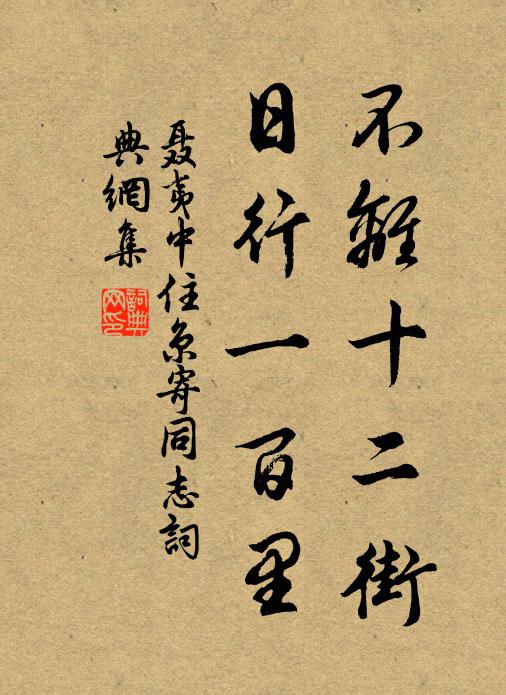 不離十二街
日行一百里
聂夷中住京寄同志詞
典網集
詞典
网印